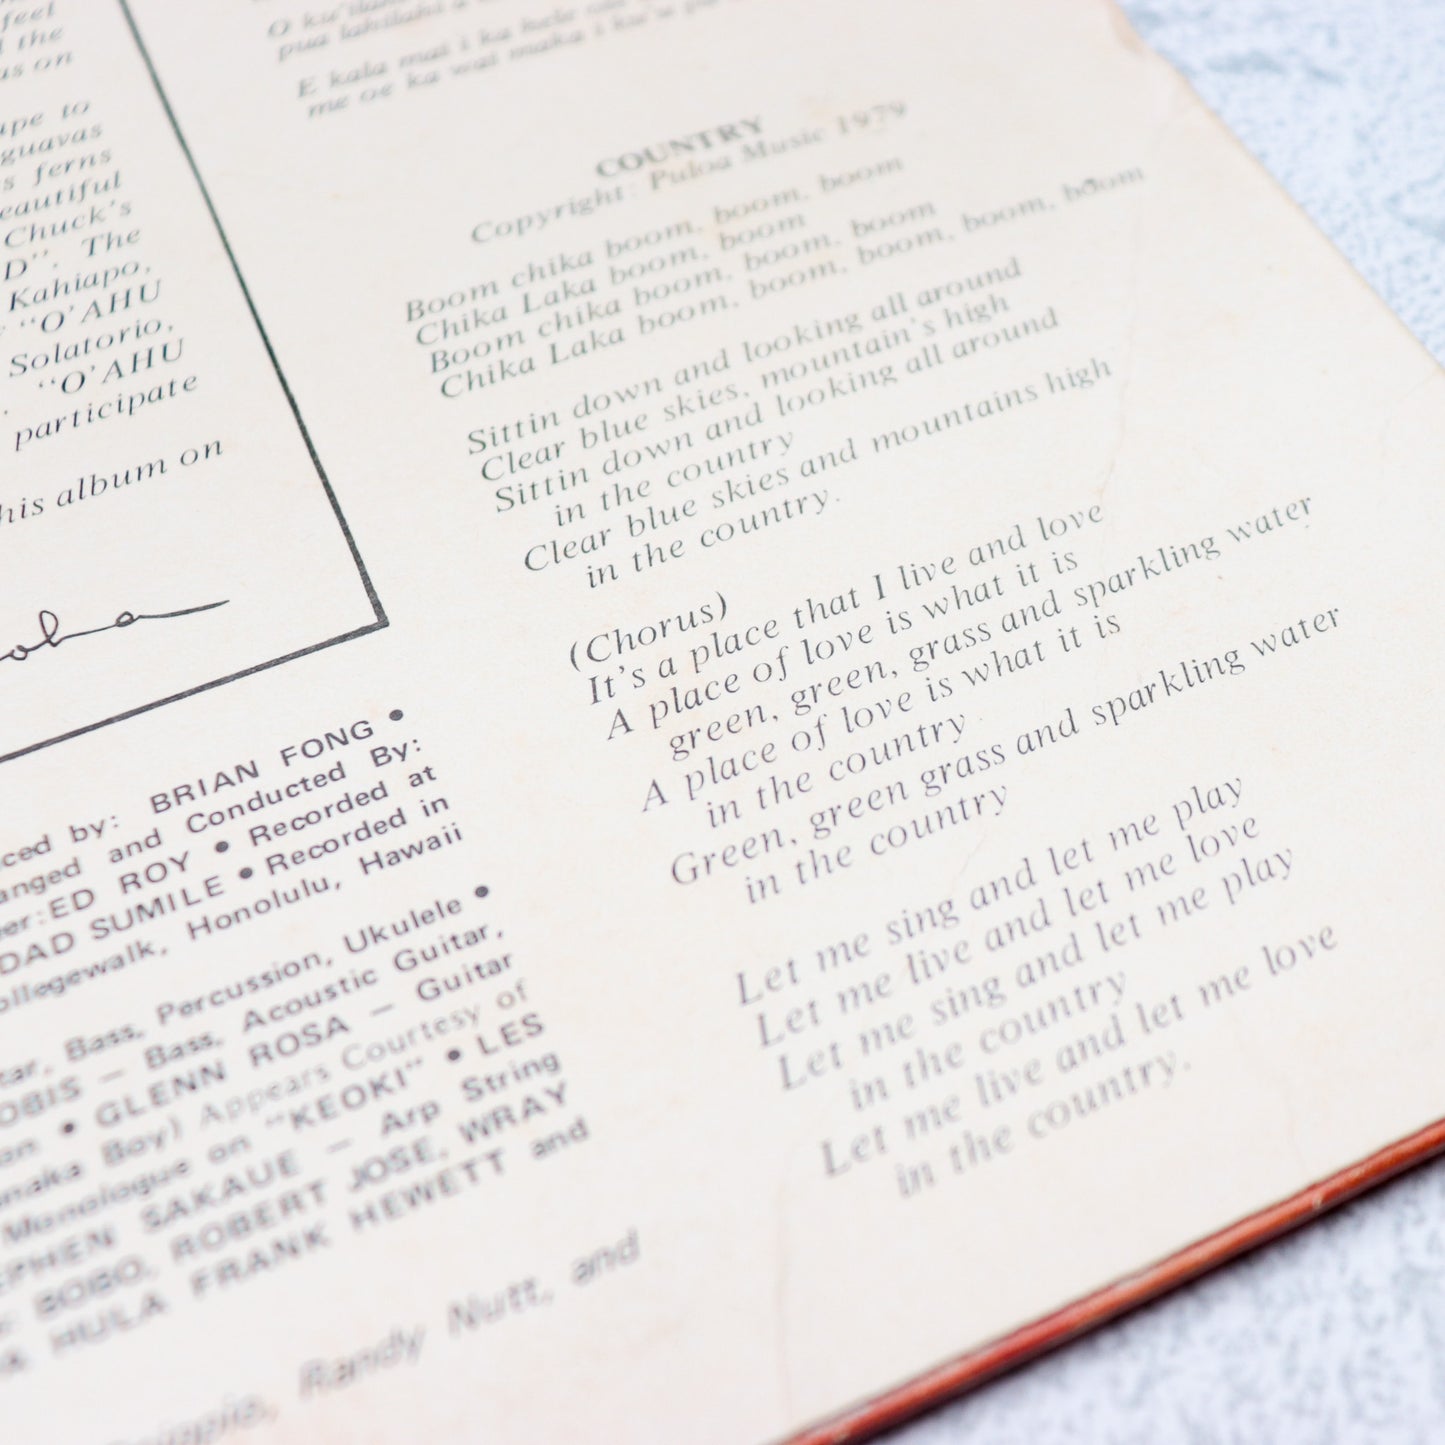 feel
the
as on
ape to
guavas
s ferns
eautiful
Chuck's
D". The
Kahiapo,
"O'AHU
Solatorio,
"O'AHU
participate
his album on
oha
ced by: BRIAN FONG •
anged and Conducted By:
er: ED ROY • Recorded at
DAD SUMILE • Recorded in
ollegewalk, Honolulu, Hawaii
tar, Bass, Percussion, Ukulele •
OBIS — Bass, Acoustic Guitar,
on • GLENN ROSA — Guitar
naka Boy) Appears Courtesy of
Monologue on "KEOKI" • LES
EPHEN SAKAUE — Arp String
BOBO, ROBERT JOSE, WRAY
HULA FRANK HEWETT and
Randy Nutt, and
E kala mai i ka hele
me oe ka wai maka i
COUNTRY
Copyright: Puloa Music 1979
Boom chika boom, boom, boom
Chika Laka boom, boom
Boom chika boom, boom, boom
Chika Laka boom, boom, boom, boom, boom
Sittin down and looking all around
Clear blue skies, mountain's high
Sittin down and looking all around
in the country
Clear blue skies and mountains high
in the country.
(Chorus)
It's a place that I live and love
A place of love is what it is
green, green, grass and sparkling water
A place of love is what it is
in the country
Green, green grass and sparkling water
in the country
Let me sing and let me play
Let me live and let me love
Let me sing and let me play
in the country
Let me live and let me love
in the country.